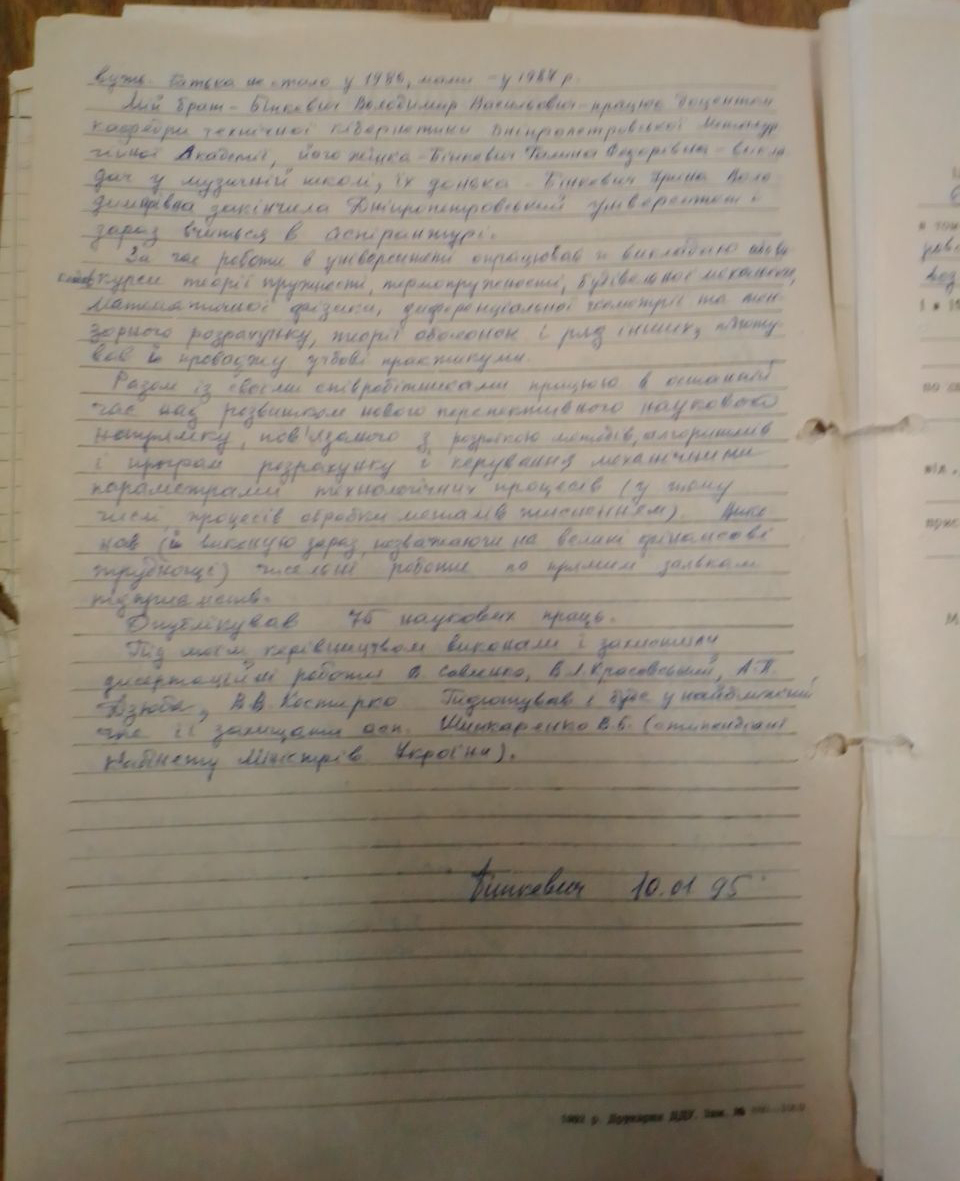 вузь. Батька не стало у 1986, мами - у 1987 р.
Мій брат - Бінкевич Володимир Васильович - працює доцентом
кафедри технічної кібернетики Дніпропетровської Металур
гічної Академії, його жінка - Бінкевич Галина Федорівна - викла
дач у музичній школі, їх донька - Бінкевич Ірина Воло
димирівна закінчила Дніпропетровський університет і
зараз вчиться в аспірантурі.
За час роботи в університеті опрацював и викладаю
курси теорії пружності, термопружності, будівельної механіки,
математичної фізики, диференціальної геометрії та тен
зорного розрахунку, теорії оболонок і ряд інших, підготу
вав й проваджу учбові практикуми.
Разом із своїми співробітниками працюю в останній
час над розвитком нового перспективного наукового
напрямку, пов'язаного з розробкою методів, алгоритмів
і програм розрахунку і керування механічними
параметрами технологічних процесів (у тому
числі процесів обробки металів тисненням). Вико
нав (й виконую зараз, незважаючи на великі фінансові
труднощі) чисельні роботи по прямим заявкам
підприємств.
Опублікував 75 наукових праць.
Під моїм керівництвом виконали і захистили
дисертаційні роботи В. Савченко, В.І. Красовський, А.П.
Дзюба, В.В. Костирко Підготував і буде у найближчий
час її захищати асп. Шинкаренко В.В. (стипендіант
Кабінету Міністрів України).
Бінкевич 10.01 95
р. Друкарня ДДУ. Зам. №